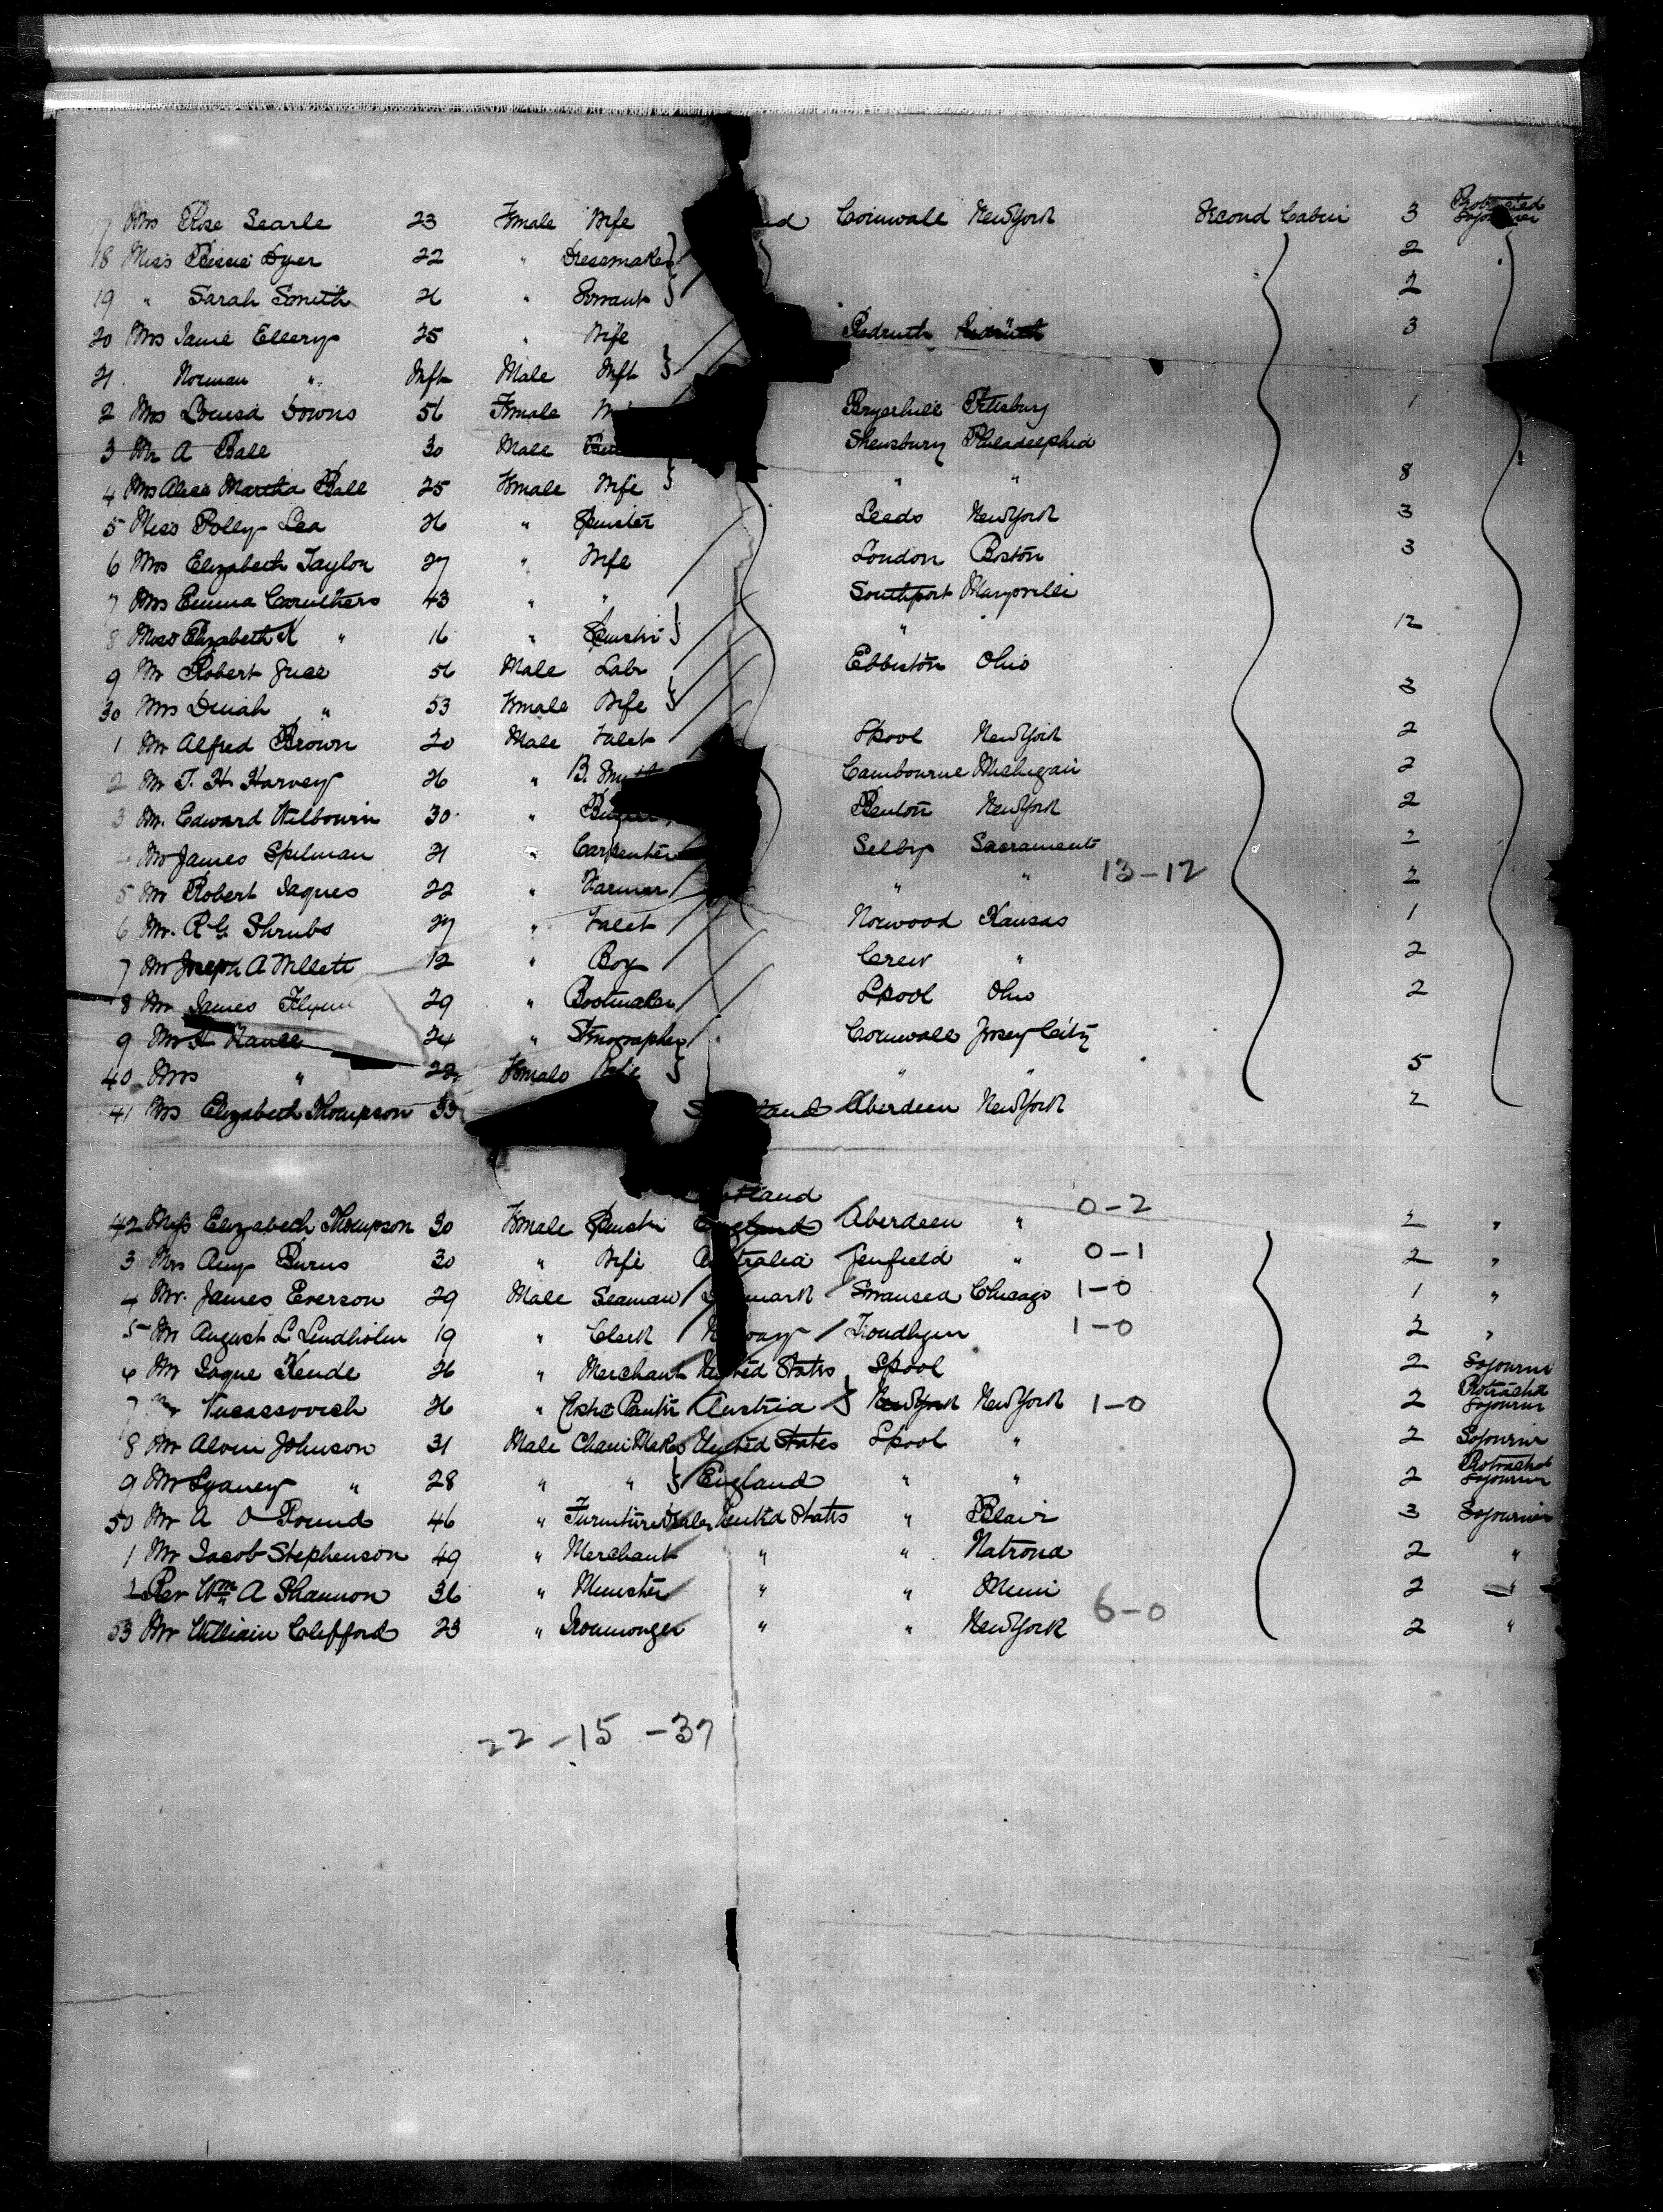 17 Mrs Rose Searle 23 Female Wife Cornwall New York Second Cabin 3 Protracted Sojourner
18 Miss Bessie Dyer 22 " Dressmaker 2
19 " Sarah Smith 26 " Servant 2
20 Mrs Jane Ellery 25 " Wife Redruth 3
21 Norman " Inft Male Inft
2 Mrs Louisa Downs 56 Female Pittsburg 1
3 Mr A Ball 30 Male Philadelphia
4 Mrs Alice Martha Ball 25 Female Wife " " 8
5 Miss Polly Lea 26 " Spinster Leeds New York 3
6 Mrs Elizabeth Taylor 27 " Wife London Boston 3
7 Mrs Emma Caruthers 43 " " Southport Marysville
8 Miss Elizabeth K " 16 " Spinster " " 12
9 Mr Robert 56 Male Labr Ohio
30 Mrs Dinah " 53 Female Wife 3
1 Mr Alfred Brown 20 Male Valet Lpool New York 2
2 Mr T. H. Harvey 26 " B. Cambourne Michigan 2
3 Mr. Edward Welbourn 30 " New York 2
4 Mr James Spilman 21 " Carpenter Selby Sacramento 2
5 Mr Robert Jaques 22 " Farmer " " 13-12 2
6 Mr. R G Shrubs 27 " Valet Norwood Kansas 1
7 Mr Joseph A Willett 12 " Boy Crew " 2
8 Mr James Flynn 29 " Bootmaker Lpool Ohio 2
9 Mr H 24 " Stenographer Cornwall Jersey City
40 Mrs " 22 Female Wife " " 5
41 Mrs Elizabeth Thompson 33 Aberdeen New York 2
42 Miss Elizabeth Thompson 30 Female Spinster Scotland England Aberdeen " 0-2 2 "
3 Mrs Amy Burns 30 " Wife Australia " 0-1 2 "
4 Mr. James Everson 29 Male Seaman Denmark Swansea Chicago 1-0 1 "
5 Mr August L Lindholm 19 " Clerk Norway 1-0 2 "
6 Mr Kende 26 " Merchant United States Lpool 2 Sojourner
7 Mr Vucassovich 26 " Austria New York New York 1-0 2 Protracted Sojourner
8 Mr Alvin Johnson 31 Male Chair Maker United States Lpool " 2 Sojourner
9 Mr Sydney " 28 " " England " " 2 Protracted Sojourner
50 Mr A O Pound 46 " Furniture Dealer United States " Blair 3 Sojourner
1 Mr Jacob Stephenson 49 " Merchant " " Natrona 2 "
2 Rev Wm A Shannon 36 " Minister " " 2 "
53 Mr William Clifford 23 " Ironmonger " " New York 6-0 2 "
22-15-37